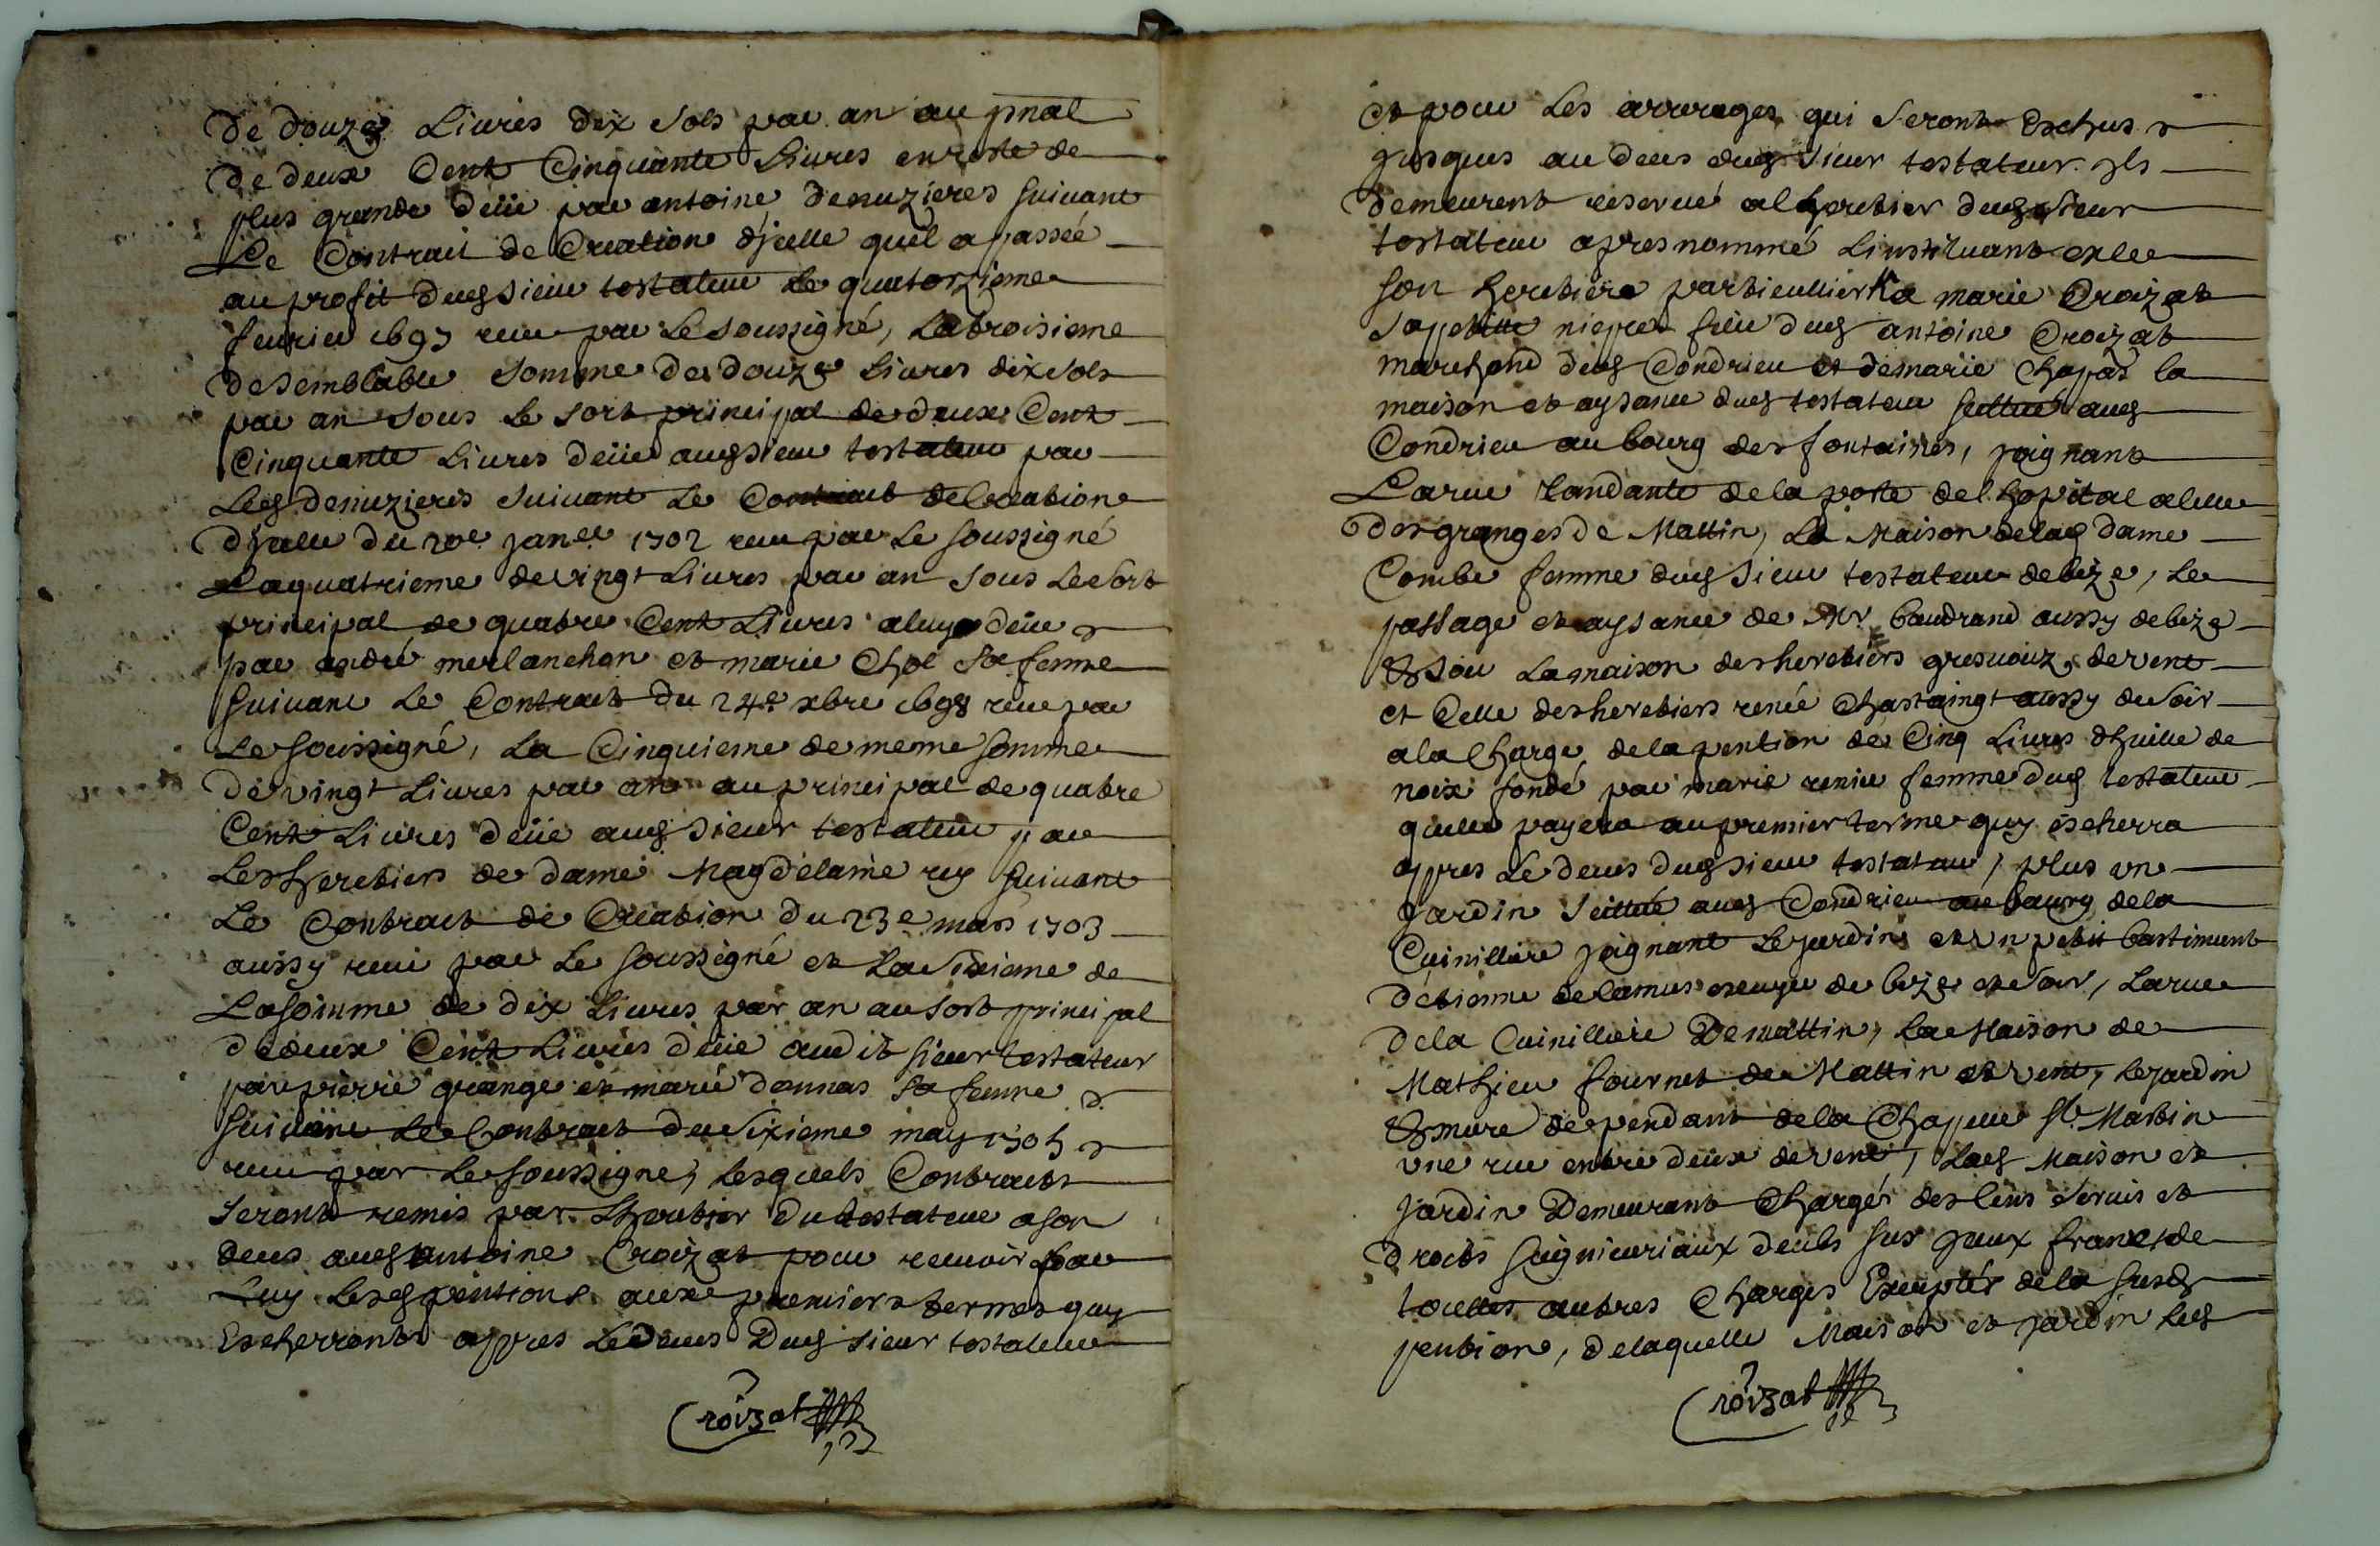 de douze Livres dix sols par an au pnal
de deux Cent Cinquante Livres en reste de
plus grande deüe par antoine denuzieres suivant
Le Contract de Creation d'jcelle quel a passée
au profit dud sieur testateur le quatorzieme
feurier 1697 receu par Le soussigné, La troisieme
de semblable somme de douze Livres dix sols
par an sous le sort principal de deux Cent
Cinquante Livres deüe aud sieur testateur par
Led denuzieres suivant Le Contract de Creation
d'jcelle du 20e janer 1702 receu par Le soussigné
La quatrieme de vingt Livres par an sous Le sort
principal de quatre Cent Livres a luy deüe
par andré merlanchon et marie Chol sa femme
suivant Le Contract du 24e xbre 1698 receu par
Le soussigné, La Cinquieme de meme somme
de vingt Livres par an au principal de quatre
Cent Livres deüe aud sieur testateur par
Les heretiers de dame Magdelaine rey suivant
Le Contract de Creation du 23e mars 1703
aussy receu par Le soussigné et La sixieme de
La somme de dix Livres par an au sort principal
de deux Cent Livres deüe audit sieur testateur
par pierre grange et marie donnas sa femme
suivant Le Contract du sixieme may 1705
receu par Le soussigné, Lesquels Contracts
seront remis par L'heretier du testateur a son
deces aud antoine Croizat pour recevoir par
Luy Lesd pentions aux premiers termes quy
Escherront appres Le deces Dud sieur testateur
Croizat
et pour Les arrerages qui seront Eschus
jusques au deces dud sieur testateur jls
demeurent reservé a l'heretier dud sieur
testateur apres nommé L'instituant
son heretiere particulliere a marie Croizat
sa petitte niepce fille dud antoine Croizat
marchand dud Condrieu et de marie Chapas la
maison et aysance dud testateur scittué aud
Condrieu au bourg des fontaines, joignant
La rue tandante de la porte de l'hopital a celle
des granges de Mattin, La Maison de lad dame
Combe femme dud sieur testateur de bize, Le
passage et aysance de Mr baudrand aussy de bize
& soir La maison des heretiers gresuouz, de vent
et Celle des heretiers renée Chastaingt aussy de soir
a la Charge de la pention de Cinq Livres d'huille de
noix fondé par marie femme dud testateur
quelle payera au premier terme quy escherra
appres Le deces dud sieur testateur, plus un
jardin scittué aud Condrieu au bourg de la
Cuinilliere joignant Le jardin et un petit bastiment
d'etienne de bize et soir, La rue
de la Cuinilliere De mattin, La Maison de
Mathieu fournet de Mattin et vent, Le jardin
& mure dependant de la Chappelle St. Martin
une rue entre deux de vent, Lad Maison et
jardin Demeurant Chargés des Cens servis et
droits seignieuriaux deubs sur jceux francs de
touttes autres Charges Exceptés de la susd
pention, de laquelle Maison et jardin Led
Croizat